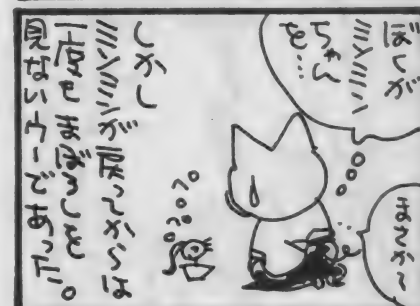 ぼくが
ミンミン
ちゃん
を…
まさか〜
しかし
ミンミンが戻ってからは
一度もまぼろしを
見ないウーであった。